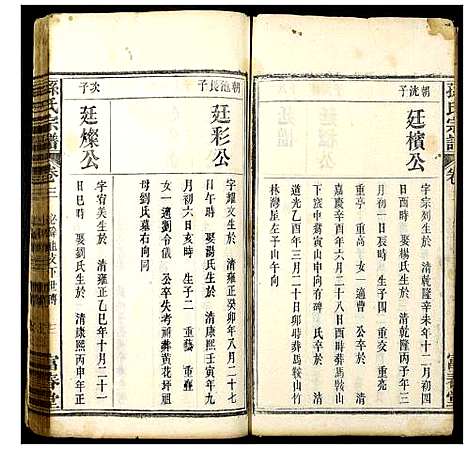 孫氏宗譜 卷
朝沇子
廷檳公
字宗列生於 清乾隆辛未年十二月初四
日辰時 娶楊氏生於 清乾隆丙子年三
月初一日亥時 生子四 重興 重亮
重亭 重高 女一 適曹 公卒於
嘉慶辛酉年六月二十八日酉時葬馬鞍山竹
下中蔣家寅山申向有碑 氏卒於
道光乙酉年三月二十日卯時葬馬鞍竹
林灣屋左子山午向
朝沇長子
廷彩公
字耀文生於 清雍正癸卯年八月二十七
日午時 娶湯氏生於 清康熙壬寅年九
月初六日亥時 生子二 重藝 重
女一適劉令儀 公卒失考 葬黃花坪祖
母劉氏墓右向同
次子
廷燦公
字宥美生於 清雍正乙巳年十月二十一
日巳時 娶劉氏生於 清康熙丙申年正
孫氏宗譜 卷三
世
富春堂
富春堂